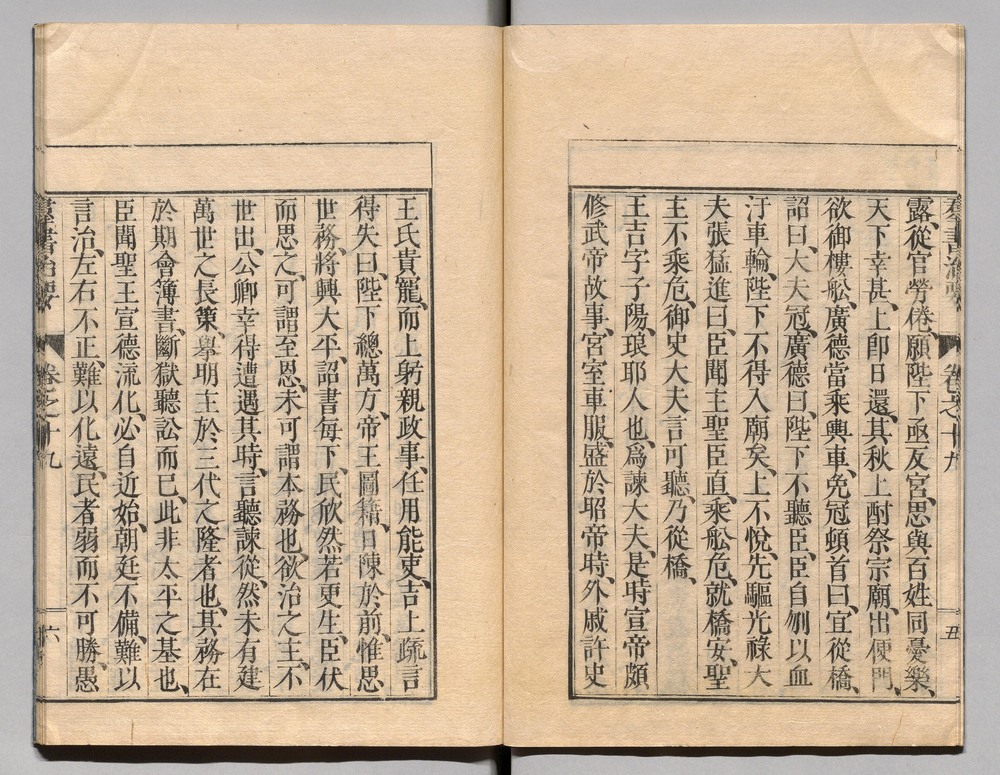 羣書治要 卷之十九 五
露、從官勞倦、願陛下亟反宮、思與百姓同憂樂、
天下幸甚、上卽日還、其秋上酎祭宗廟、出便門、
欲御樓舩、廣德當乘輿車、免冠頓首曰、宜從橋、
詔曰、大夫冠、廣德曰、陛下不聽臣、臣自刎以血
汙車輪、陛下不得入廟矣、上不悅、先驅光祿大
夫張猛進曰、臣聞主聖臣直、乘舩危、就橋安、聖
主不乘危、御史大夫言可聽、乃從橋、
王吉字子陽、琅耶人也、爲諫大夫、是時宣帝頗
修武帝故事、宮室車服、盛於昭帝時、外戚許史
王氏貴寵、而上躬親政事、任用能吏、吉上疏言
得失曰、陛下總萬方、帝王圖籍、日陳於前、惟思
世務、將興大平、詔書每下、民欣然若更生、臣伏
而思之、可謂至恩、未可謂本務也、欲治之主、不
世出、公卿幸得遭遇其時、言聽諫從、然未有建
萬世之長策、擧明主於三代之隆者也、其務在
於期會簿書、斷獄聽訟而已、此非太平之基也、
臣聞聖王宣德流化、必自近始、朝廷不備、難以
言治、左右不正、難以化遠、民者弱而不可勝、愚
羣書治要 卷之十九 六